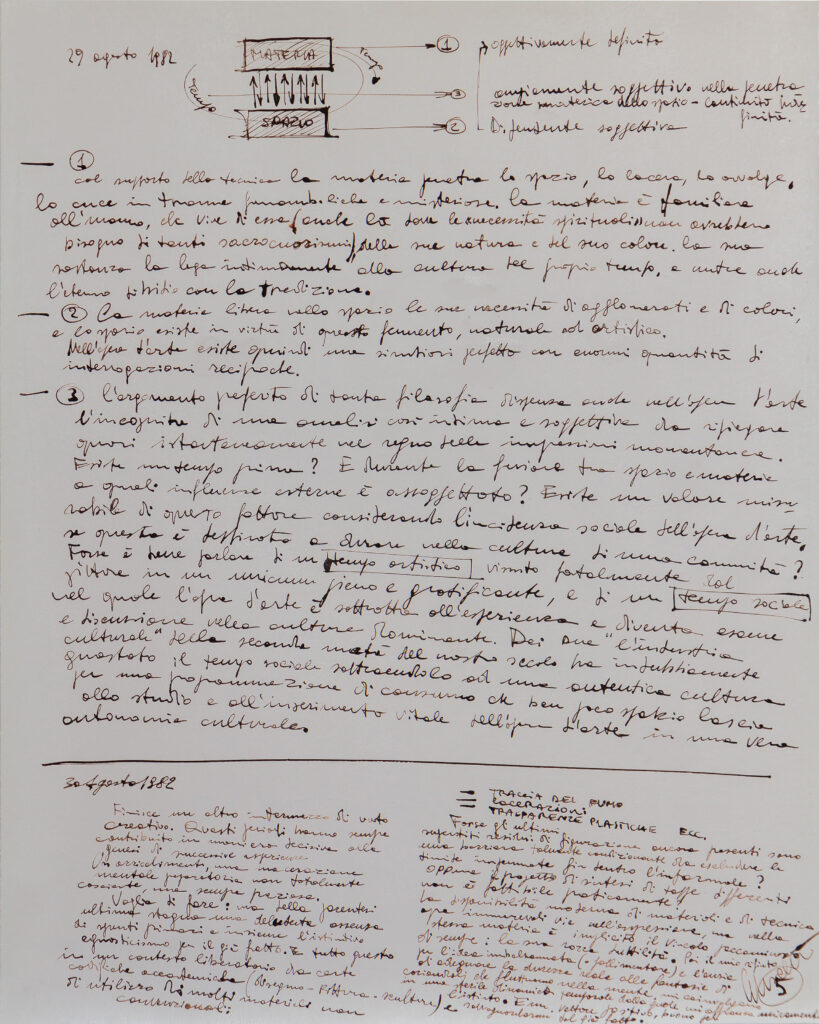 29 agosto 1982
MATERIA
tempo
tempo
SPAZIO
1 oggettivamente definito
3 ampiamente soggettivo nella penetra
zione materica dello spazio - continuità
finità.
2 Dipendente soggettiva
1
col supporto della tecnica la materia penetra lo spazio, lo lacera, lo avvolge,
lo cuce in trame funamboliche e misteriose. La materia è familiare
all'uomo, che vive di essa (anche là dove le "necessità spirituali" non avrebbero
bisogno di tanti) della sua natura e del suo colore. La sua
sostanza la lega intimamente alla cultura del proprio tempo, e nutre anche
l'eterno with con la tradizione.
2 La materia libera nello spazio le sue necessità di agglomerati e di colori,
e lo spazio esiste in virtù di questo fermento, naturale ed artistico.
Nell'opera d'arte esiste quindi una simbiosi perfetta con enormi quantità di
interrogazioni reciproche.
3 L'argomento preferito di tanta filosofia dispensa anche nell'opera d'arte
l'incognita di una analisi così intima e soggettiva da ripiegare
quasi istantaneamente nel regno delle impressioni momentanee.
Esiste un tempo prima? E durante la fusione tra spazio e materia
a quali influenze esterne è assoggettato? Esiste un valore misu-
rabile di questo fattore considerando l'incidenza sociale dell'opera d'arte,
se questa è destinata a durare nella cultura di una comunità?
Forse è bene parlare di un tempo artistico vissuto totalmente dal
pittore in un unicum pieno e gratificante, e di un tempo sociale
nel quale l'opera d'arte è sottratta all'esperienza e diventa esame
e discussione nella cultura dominante. Dei due "l'industria
culturale" della seconda metà del nostro secolo ha ingiustamente
guastato il tempo sociale sottraendolo ad una autentica cultura
per una programmazione di consumo che ben poco spazio lascia
allo studio e all'inserimento vitale dell'opera d'arte in una vera
autonomia culturale.
30 Agosto 1982
Finisce un altro intermezzo di vuoto
creativo. Questi periodi hanno sempre
contribuito in maniera decisiva alla
genesi di successive esperienze
un arricchimento, una macerazione
mentale preparatoria non totalmente
cosciente, ma sempre preziosa.
Voglia di fare: ma della parentesi
ultima stagna una deludente assenza
di spunti primari e insieme l'istintivo
agnosticismo per il già fatto. E tutto questo
in un contesto liberatorio da certe
codifiche accademiche (disegno-pittura-scultura) e
di utilizzo di molti materiali non
convenzionali.
TRACCIA DEL FUMO
LACERAZIONI
TRASPARENZE PLASTICHE ECC.
Forse gli ultimi
superstiti residui di figurazione ancora presenti sono
una barriera talmente condizionante da escludere la
fin dentro l'informale?
oppure il progetto di sintesi di tappe differenti
non è fattibile praticamente?
La disponibilità moderna di materiali e di tecnica
apre innumerevoli vie nell'espressione, ma nella
stessa materia è implicito il vincolo peccaminoso
di sempre: la sua rozza futilità. Poi il mio rifiuto
per l'idea imbalsamata e l'ansia
di adeguare la durezza reale alle fantasie di
coriandoli che fluttuano nella mente, mi coinvolgono
in una sterile dinamica
l'istinto.
del già fatto.
5